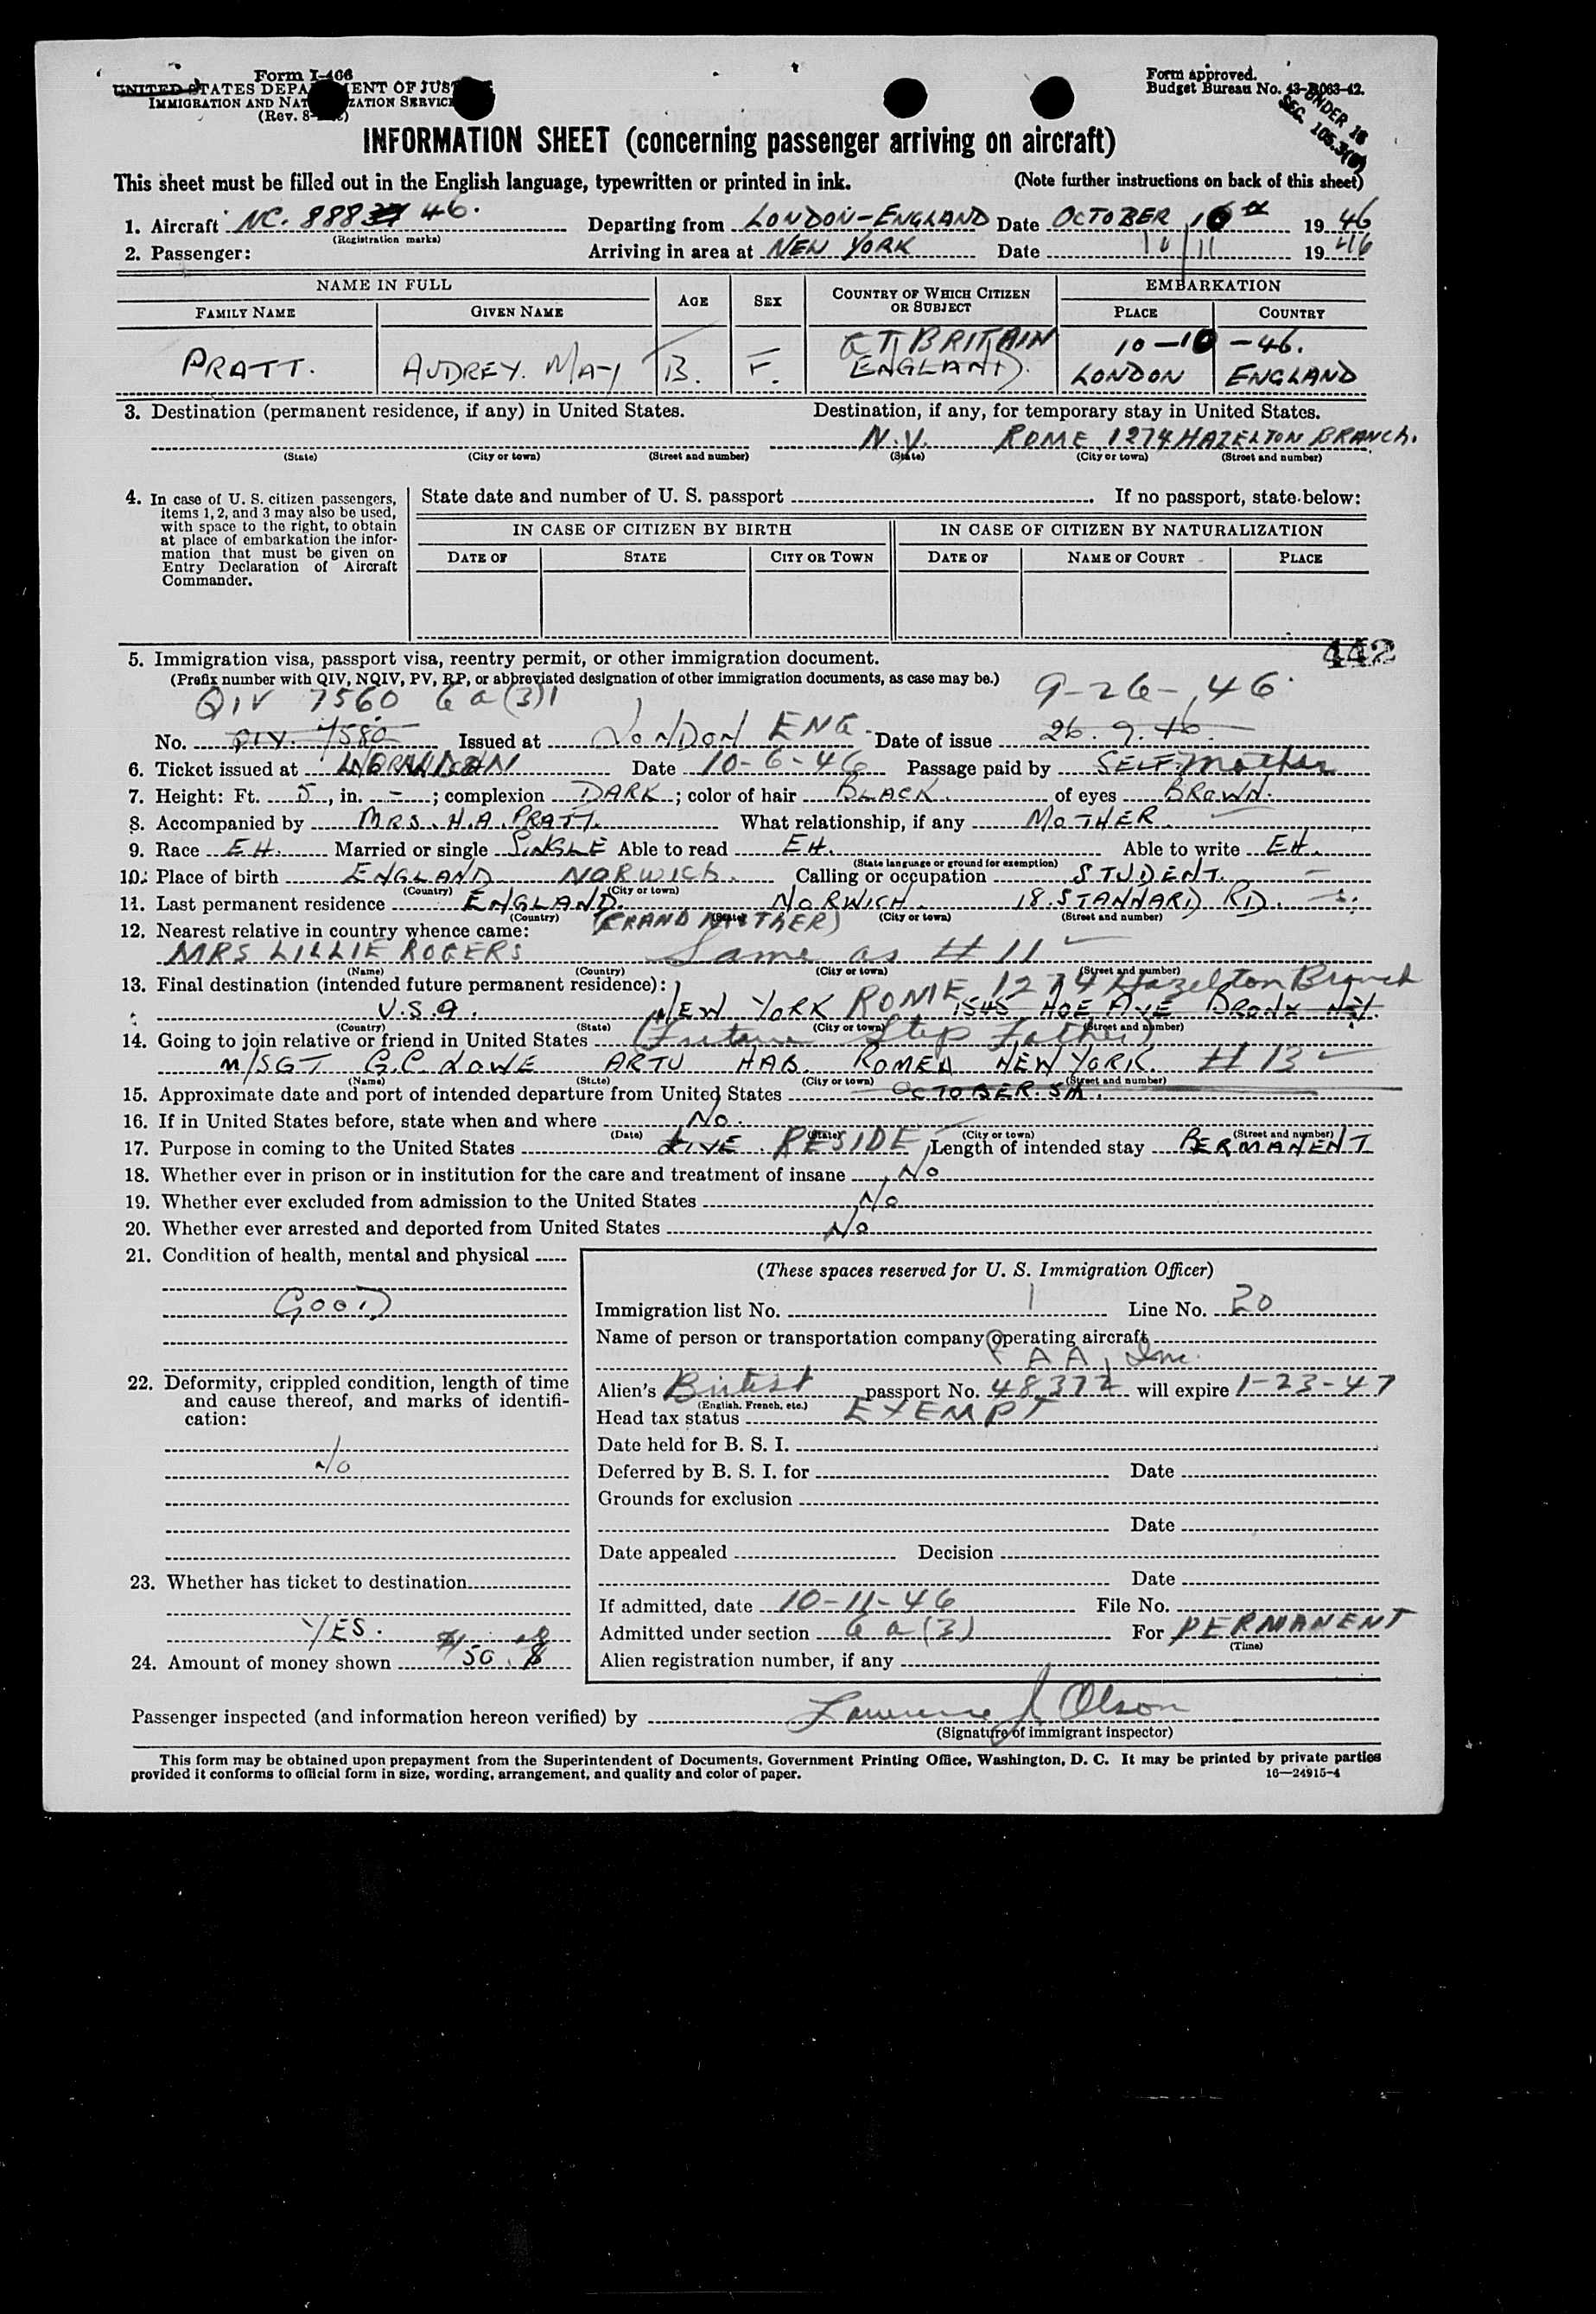 Form I-466
UNITED STATES DEPA ENT OF JUS
IMMIGRATION AND NAT ZATION SERVIC
(Rev. 8-
Form approved.
Budget Bureau No. 43-R063-42.
UNDER 16
SEC. 105.3(
INFORMATION SHEET (concerning passenger arriving on aircraft)
This sheet must be filled out in the English language, typewritten or printed in ink. (Note further instructions on back of this sheet)
1. Aircraft NC. 888 46. Departing from LONDON-ENGLAND Date OCTOBER 1946
(Registration marks)
2. Passenger: Arriving in area at NEW YORK Date 10/11 1946
NAME IN FULL AGE SEX COUNTRY OF WHICH CITIZEN OR SUBJECT EMBARKATION
FAMILY NAME GIVEN NAME PLACE COUNTRY
GT BRITAIN 10-10-46.
PRATT. AUDREY. MAY F. ENGLAND. LONDON ENGLAND
3. Destination (permanent residence, if any) in United States. Destination, if any, for temporary stay in United States.
N.Y. ROME 1274 HAZELTON BRANCH.
(State) (City or town) (Street and number) (State) (City or town) (Street and number)
4. In case of U. S. citizen passengers, items 1, 2, and 3 may also be used, with space to the right, to obtain at place of embarkation the information that must be given on Entry Declaration of Aircraft Commander.
State date and number of U. S. passport . If no passport, state below:
IN CASE OF CITIZEN BY BIRTH IN CASE OF CITIZEN BY NATURALIZATION
DATE OF STATE CITY OR TOWN DATE OF NAME OF COURT PLACE
442
5. Immigration visa, passport visa, reentry permit, or other immigration document.
(Prefix number with QIV, NQIV, PV, RP, or abbreviated designation of other immigration documents, as case may be.)
QIV 7560 6a(3)1 9-26-46
No. QIV. 7580 Issued at LONDON ENG. Date of issue 26.9.46.
6. Ticket issued at Date 10-6-46 Passage paid by SELF. Mother
7. Height: Ft. 5, in. -; complexion DARK; color of hair BLACK. of eyes BROWN.
8. Accompanied by MRS. H.A. PRATT. What relationship, if any MOTHER.
9. Race EH. Married or single SINGLE Able to read EH. Able to write EH.
(State language or ground for exemption)
10. Place of birth ENGLAND NORWICH. Calling or occupation STUDENT.
(Country) (City or town)
11. Last permanent residence ENGLAND. NORWICH. 18. STANNARD RD.
(Country) (State) (City or town) (Street and number)
12. Nearest relative in country whence came: (GRAND MOTHER)
MRS LILLIE ROGERS Same as # 11
(Name) (Country) (City or town) (Street and number)
13. Final destination (intended future permanent residence): ROME 1274 Hazelton Branch
U.S.A. NEW YORK 1545 HOE AVE BRONX N.Y.
(Country) (State) (City or town) (Street and number)
14. Going to join relative or friend in United States (Future Step Father)
M/SGT G.C. LOWE ARTU HAB. ROME NEW YORK. # 13
(Name) (State) (City or town) (Street and number)
15. Approximate date and port of intended departure from United States OCTOBER. 5th.
16. If in United States before, state when and where No.
(Date) (State) (City or town) (Street and number)
17. Purpose in coming to the United States LIVE. RESIDE Length of intended stay PERMANENT
18. Whether ever in prison or in institution for the care and treatment of insane No
19. Whether ever excluded from admission to the United States No
20. Whether ever arrested and deported from United States No
21. Condition of health, mental and physical
GOOD
22. Deformity, crippled condition, length of time and cause thereof, and marks of identification:
No
23. Whether has ticket to destination
YES.
24. Amount of money shown 50.
(These spaces reserved for U. S. Immigration Officer)
Immigration list No. 1 Line No. 20
Name of person or transportation company operating aircraft
PAA, Inc.
Alien's British passport No. 48372 will expire 1-23-47
(English, French, etc.)
Head tax status EXEMPT
Date held for B. S. I.
Deferred by B. S. I. for Date
Grounds for exclusion
Date
Date appealed Decision
Date
If admitted, date 10-11-46 File No.
Admitted under section 6a(3) For PERMANENT
(Time)
Alien registration number, if any
Passenger inspected (and information hereon verified) by Lawrence J Olson
(Signature of immigrant inspector)
This form may be obtained upon prepayment from the Superintendent of Documents, Government Printing Office, Washington, D. C. It may be printed by private parties
provided it conforms to official form in size, wording, arrangement, and quality and color of paper. 16—24915-4